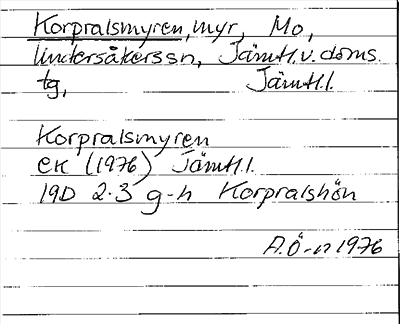 Korpralsmyren, myr, Mo,
Undersåkerssn, Jämtl.v.doms.
tg, Jämtl.l.
Korpralsmyren
ek (1976) Jämtl.l.
19D 2-3 g-h Korpralshön
A.Ö-n 1976